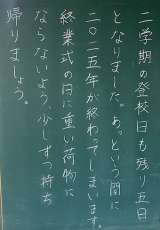 二学期の登校日も残り五日
となりました。あっという間に
二〇二五年が終わってしまいます。
終業式の日に重い荷物に
ならないよう、少しずつ持ち
帰りましょう。